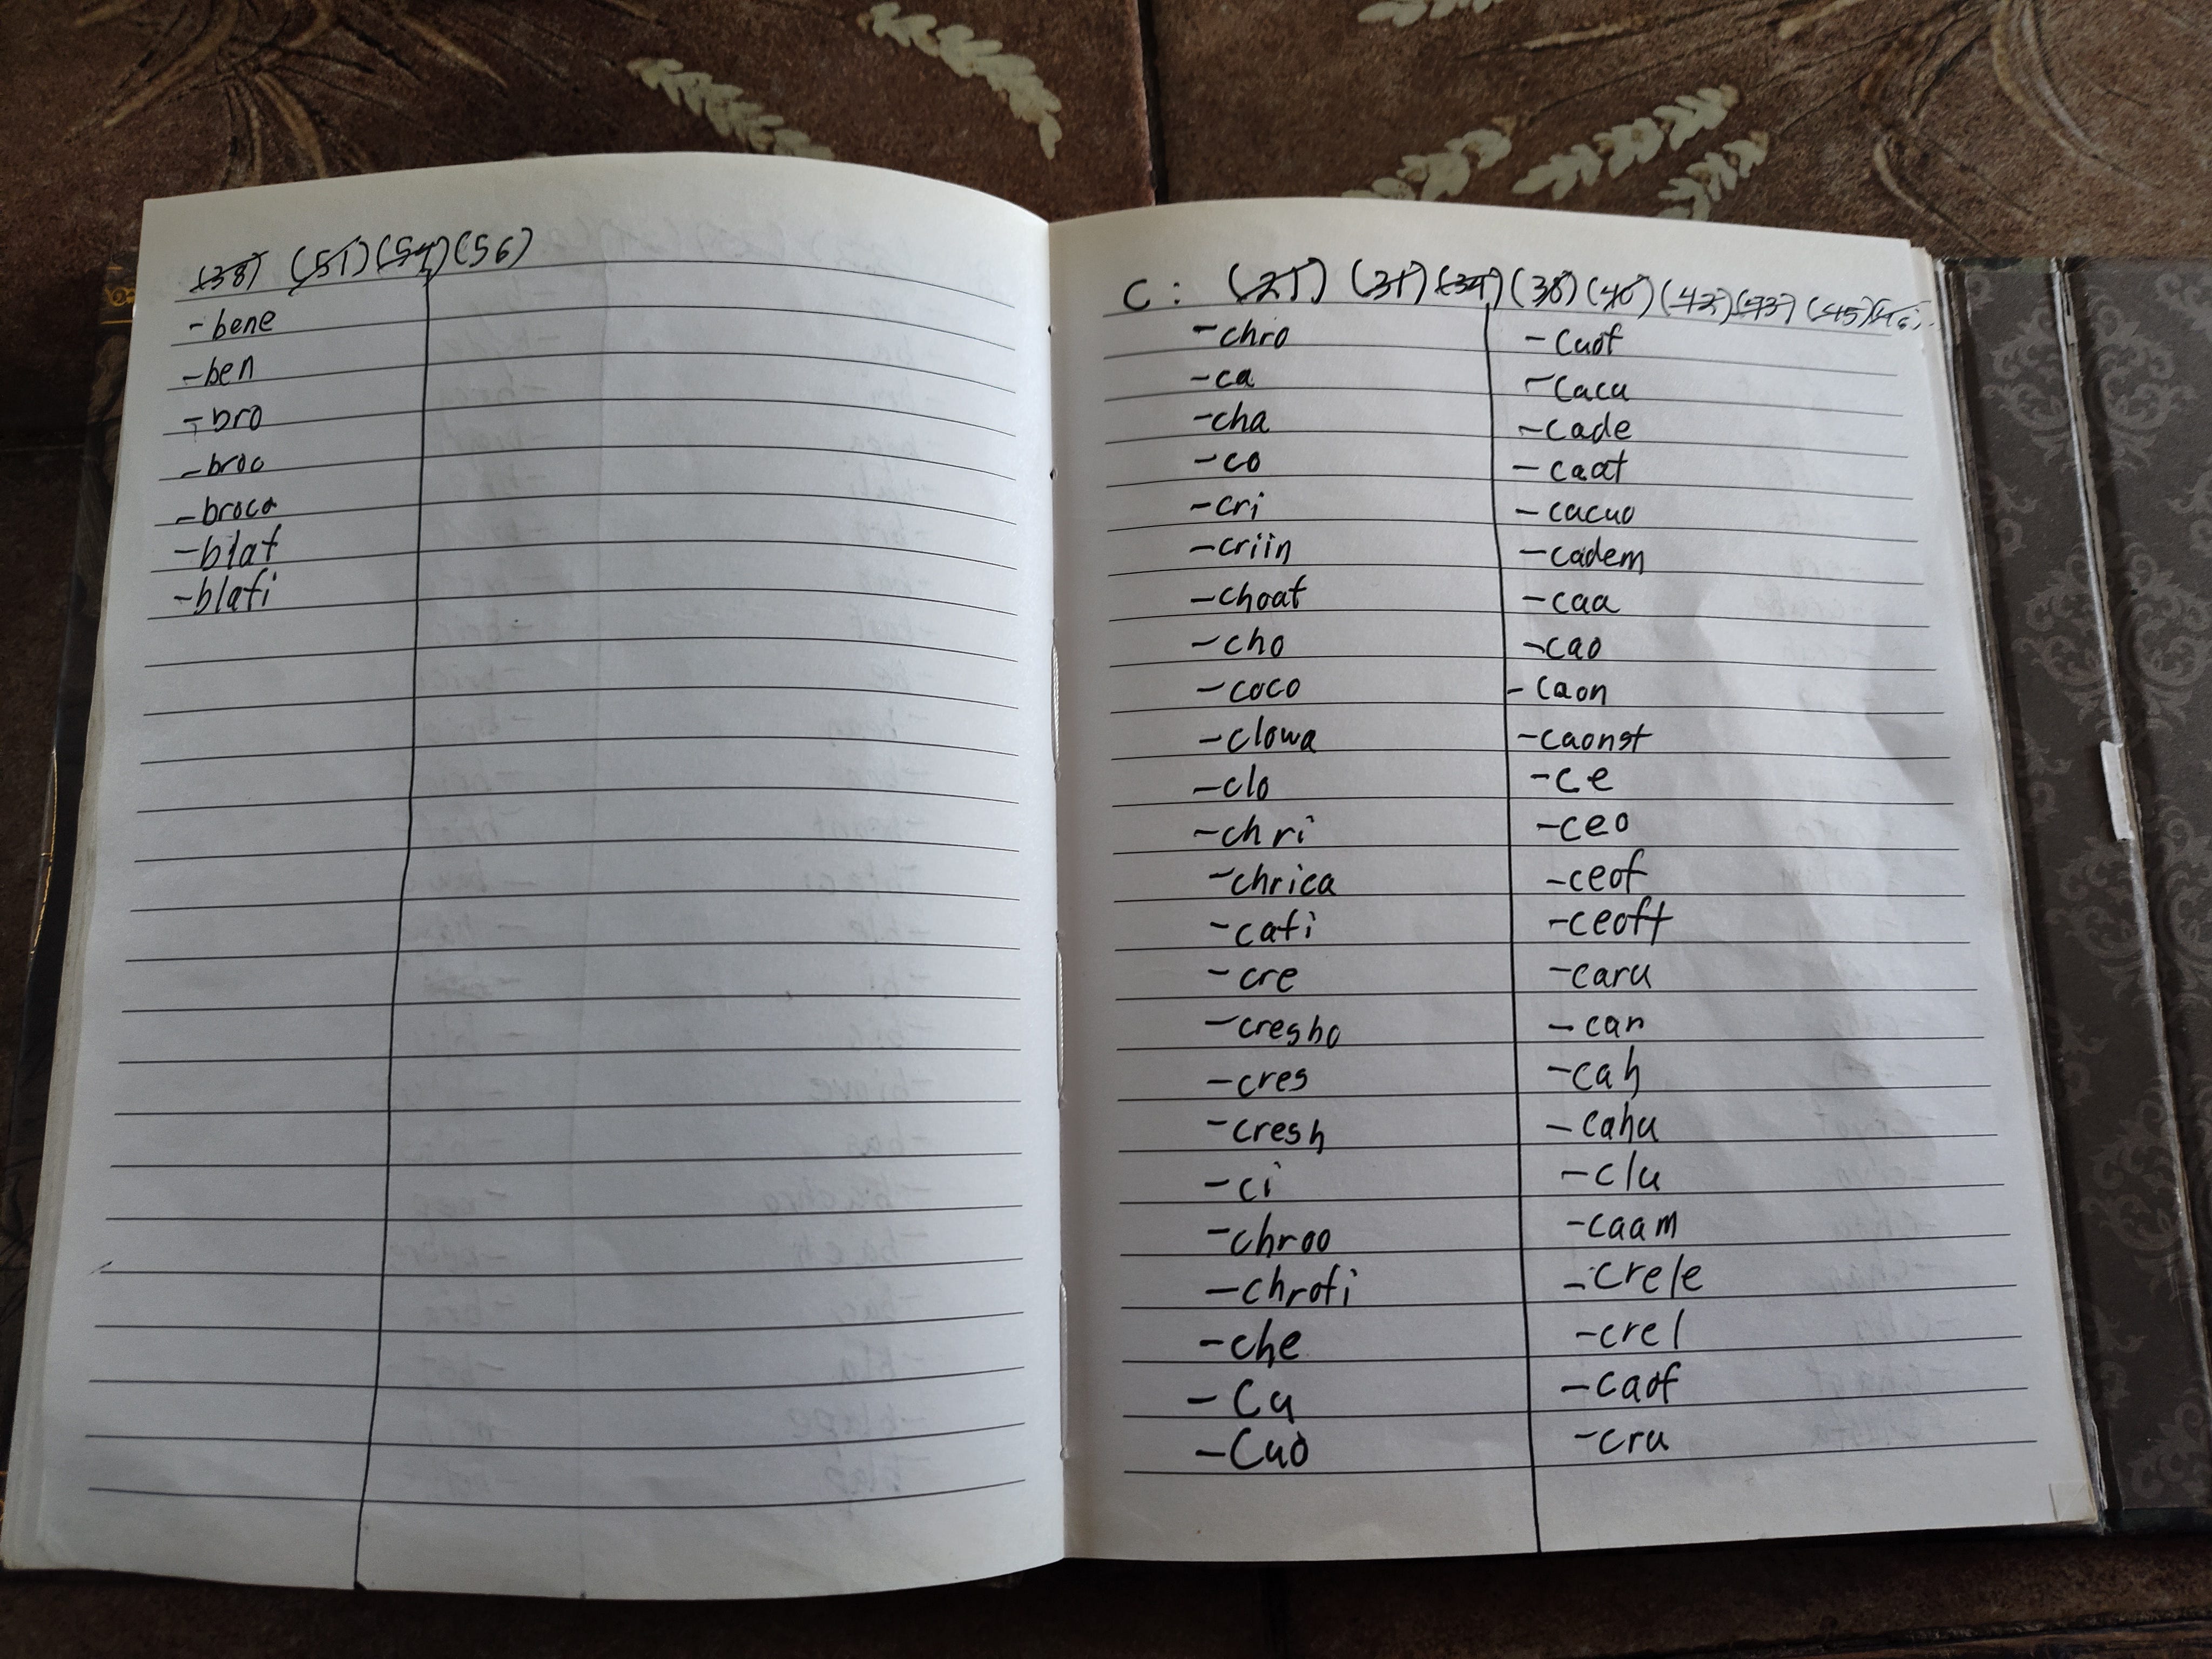 (38) (51) (54) (56)
-bene
-ben
-bro
-broc
-broca
-blat
-blati
C: (25) (31) (34) (38) (40) (42) (43) (45) (46)
-chro
-ca
-cha
-co
-cri
-criin
-choat
-cho
-coco
-clowa
-clo
-chri
-chrica
-cati
-cre
-cresho
-cres
-cresh
-ci
-chroo
-chroti
-che
-Cu
-Cuo
-Cuot
-Cacu
-cade
-caat
-cacuo
-cadem
-caa
-cao
-caon
-caonst
-ce
-ceo
-ceof
-ceoft
-caru
-car
-cah
-cahu
-clu
-caam
-crele
-crel
-caof
-cru